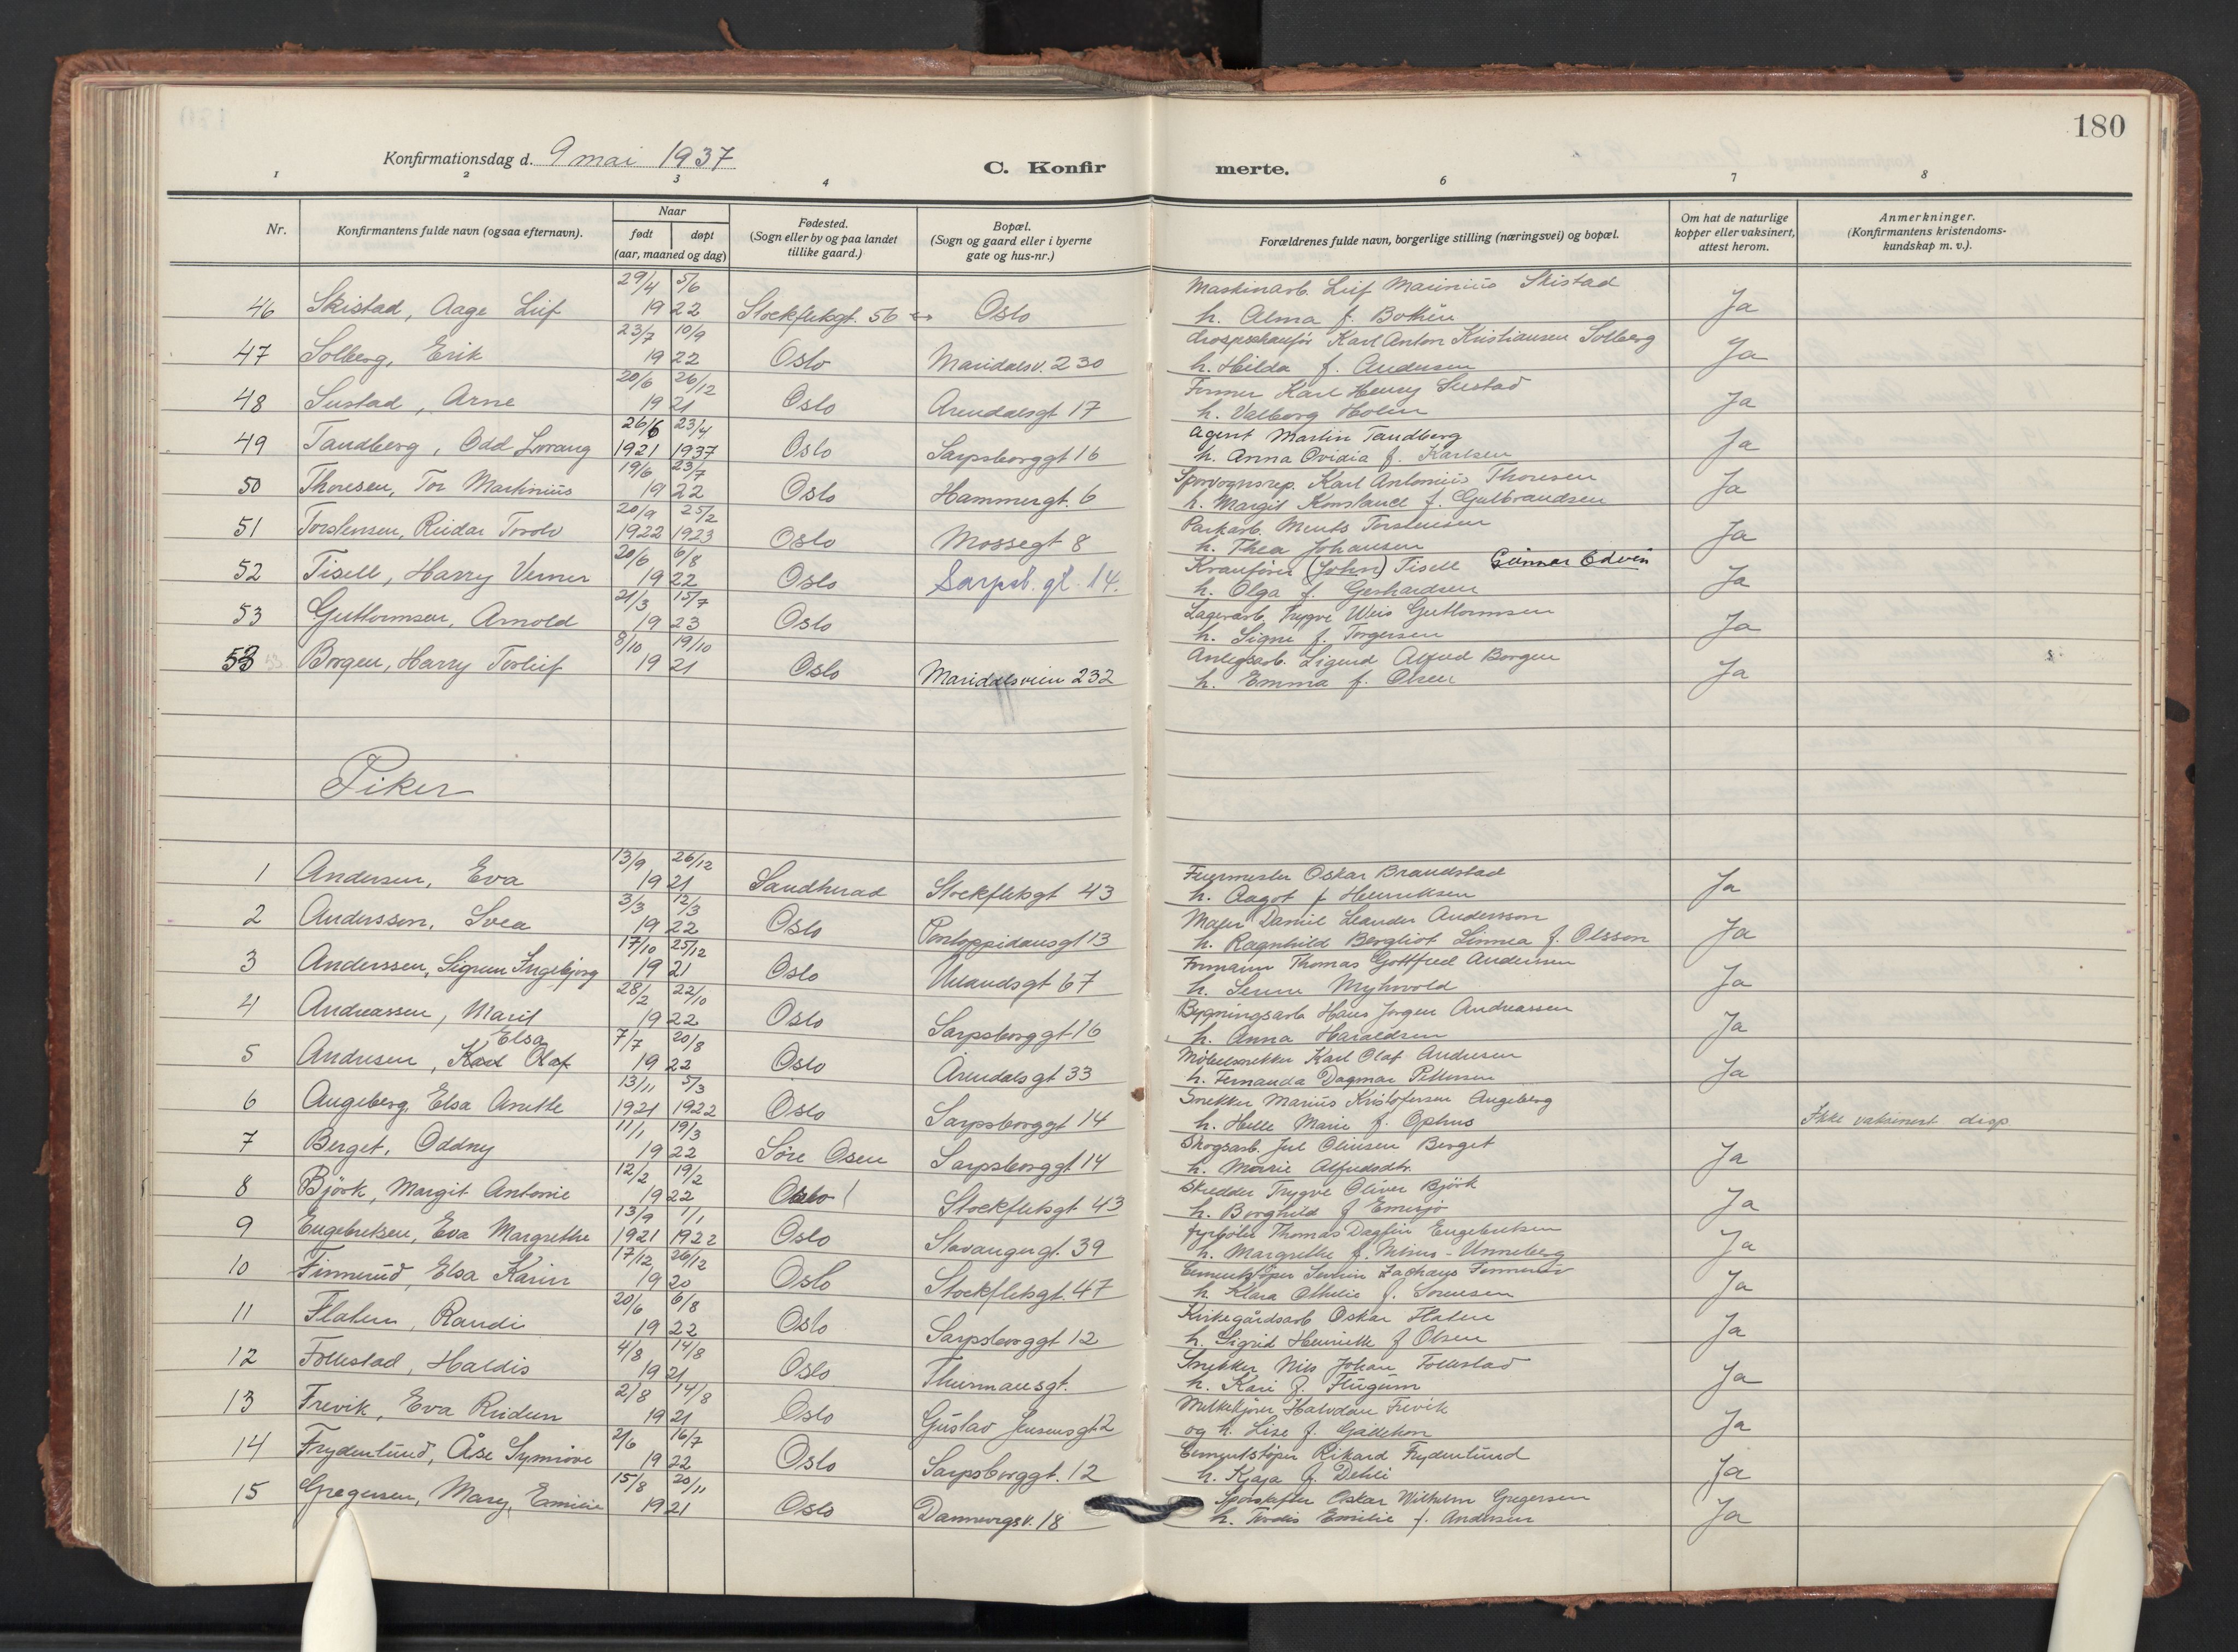 180
Konfirmationsdag d. 9 mai 1937
C. Konfirmerte.
1 2 3 4 6 7 8
Nr.
Konfirmantens fulde navn (ogsaa efternavn).
Naar
født døpt
(aar, maaned og dag)
Fødested.
(Sogn eller by og paa landet
tillike gaard.)
Bopæl.
(Sogn og gaard eller i byerne
gate og hus-nr.)
Forældrenes fulde navn, borgerlige stilling (næringsvei) og bopæl.
Om hat de naturlige
kopper eller vaksinert,
attest herom.
Anmerkninger.
(Konfirmantens kristendoms-
kundskap m. v.).
29/4 5/6 Maskinarb. Leif Marinius Skistad
46 Skistad, Aage Leif 1922 Stockfletsgt. 56 Oslo h. Alma f. Bothén Ja
23/7 10/9 drosjeschauför Karl Anton Kristiansen Solberg
47 Solberg, Erik 1922 Oslo Maridalsv. 230 h. Hilda f. Andersen Ja
20/6 26/12 Former Karl Henry Sustad
48 Sustad, Arne 1921 Oslo Arendalsgt 17 h. Valborg Holm Ja
26/6 23/4 Agent Martin Tandberg
49 Tandberg, Odd Lorang 1921 1937 Oslo Sarpsborggt 16 h. Anna Ovidia f. Karlsen Ja
19/6 23/7 Sporvognsrep. Karl Antonius Thoresen
50 Thoresen, Tor Martinius 1922 Oslo Hammergt. 6 h. Margit Konstance f. Gulbrandsen Ja
20/9 25/2 Parkarb. Ments Torstensen
51 Torstensen, Reidar Torolv 1922 1923 Oslo Mossegt 8 h. Thea Johansen Ja
20/6 6/8 Kranfører (John) Tisell Gunnar Edvin
52 Tisell, Harry Verner 1922 Oslo Sarpsb. gt. 14. h. Olga f. Gerhardsen Ja
21/3 15/7 Lagerarb. Trygve Weis Guttormsen
53 Guttormsen, Arnold 1923 Oslo h. Signe f. Torgersen Ja
8/10 19/10 Anlegsarb. Sigurd Alfred Borgen
53 Borgen, Harry Torleif 1921 Oslo Maridalsveien 232 h. Emma f. Olsen Ja
Piker
13/9 26/12 Feiermester Oskar Brandstad
1 Andersen, Eva 1921 Sandherad Stockfletsgt 43 h. Aagot f Henriksen Ja
3/3 12/3 Maler Daniel Leander Andersson
2 Anderssen, Svea 1922 Oslo Pontoppidansgt 13 h. Ragnhild Bergliot Linnea f. Olsson Ja
17/10 25/12 Formann Thomas Gottfred Anderssen
3 Anderssen, Sigrun Ingebjørg 1921 Oslo Uelandsgt 67 h. Myhrvold Ja
28/2 22/10 Bygningsarb Hans Jørgen Andreassen
4 Andreassen, Marit 1922 Oslo Sarpsborggt 16 h. Anna Haraldsen Ja
Elsa 7/7 20/8 Møbelsnekker Karl Olaf Andresen
5 Andresen, Karl Olaf 1922 Oslo Arendalsgt 33 h. Fernanda Dagmar Pettersen Ja
13/11 5/3 Snekker Marius Kristofersen Angeberg
6 Angeberg, Elsa Anette 1921 1922 Oslo Sarpsborggt 14 h. Helle Marie f. Ophus Ikke vaksinert disp
11/1 19/3 Skogsarb. Jul Olinsen Berget
7 Berget, Oddny 1922 Søre Osen Sarpsborggt 14 h. Marie Alfredsdtr. Ja
12/2 19/2 Skredder Trygve Oliver Björk
8 Björk, Margit Antonie 1922 Oslo Stockfletsgt 43 h. Borghild f Ja
13/9 1/1 fyrbøter Thomas Dagfin Engebretsen
9 Engebretsen, Eva Margrethe 1921 1922 Oslo Stavangergt. 39 h. Margrethe f. Unneberg Ja
17/12 26/12 Cementstøper Zachæus Finnerud
10 Finnerud, Elsa Karin 1920 Oslo Stockfletsgt. 47 h. Klara Othelie f. Sørensen Ja
20/6 6/8 Kirkegårdsarb Oskar Flaten
11 Flaten, Randi 1922 Oslo Sarpsborggt 12 h. Sigrid Henriette f Olsen Ja
4/8 14/8 Snekker Nils Johan Follestad
12 Follestad, Haldis 1921 Oslo Thurmansgt. h. Kari f. Flugum Ja
2/8 14/8 Melkekjører Halvdan Frevik
13 Frevik, Eva Reidun 1921 Oslo Gustav Jensensgt 2 og h. Lise f. Ja
2/6 16/7 Cementstøper Rikard Frydenlund
14 Frydenlund, Åse Synnøve 1922 Oslo Sarpsborggt. 12 h. Kjaja f. Dehli Ja
15/8 20/11 Sporskifter Oskar Wilhelm Gregersen
15 Gregersen, Mary, Emilie 1921 Oslo Dannevigsv. 18 h. Tordis Emilie f. Andersen Ja